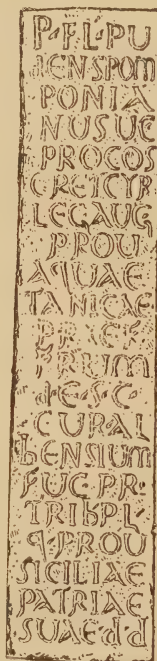 P·FL·PU
dENSPOM
PONIA
NUSUC
PROCOS
CRETCYR
LEGAUG
PROU
AqUAE
TANICAE
FRUM
d·E·S·C·
CURAL
bENSIUM
FUC·PR·
TRIbPL·
q·PROU
SICILIAE
PATRIAE
SUAE·d·d